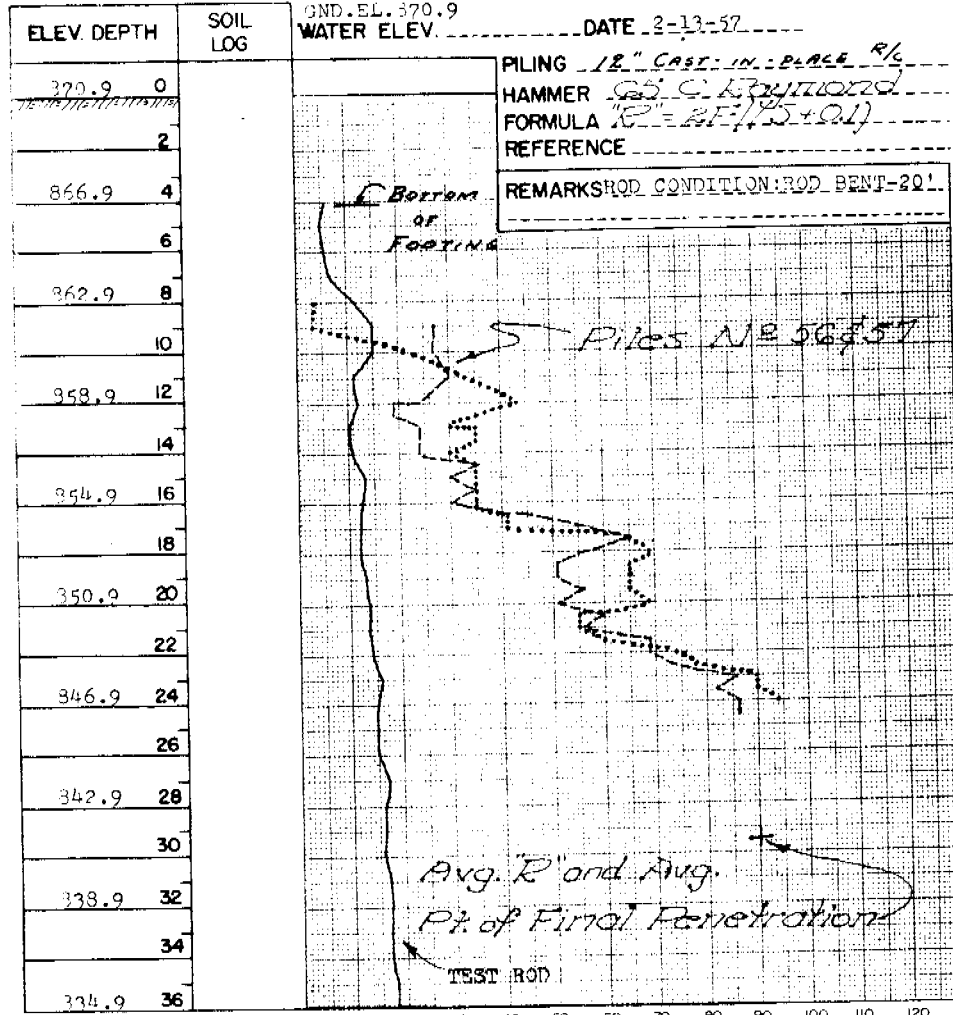 GND.EL.870.9
ELEV. DEPTH
SOIL LOG
WATER ELEV. DATE 2-13-57
PILING 12" CAST-IN-PLACE R/C
HAMMER C Raymond
FORMULA "R" =
REFERENCE
REMARKS ROD CONDITION: ROD BENT-20'
870.9 0
2
866.9 4
6
862.9 8
10
858.9 12
14
854.9 16
18
850.9 20
22
846.9 24
26
842.9 28
30
838.9 32
34
834.9 36
BOTTOM
OF
FOOTING
Piles Nº 56 & 57
Avg. "R" and Avg.
Pt. of Final Penetration
TEST ROD
70 80 90 100 110 120